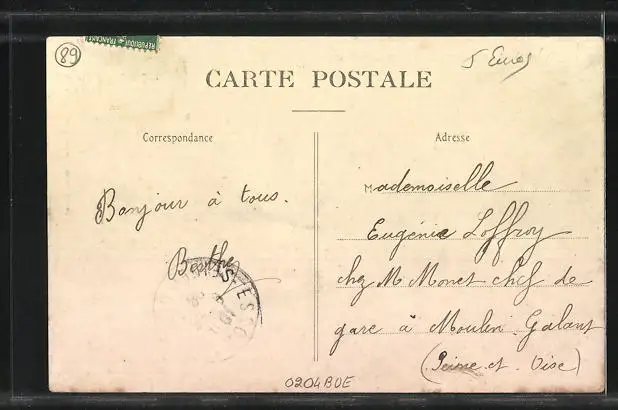 89
REPUBLIQUE FRANCAISE
5 Euros
CARTE POSTALE
Correspondance
Adresse
Bonjour à tous.
Berthe
Mademoiselle
Eugénie Loffroy
chez M Monet chef de
gare à Moulin Galant
(Seine et Oise)
0204BUE